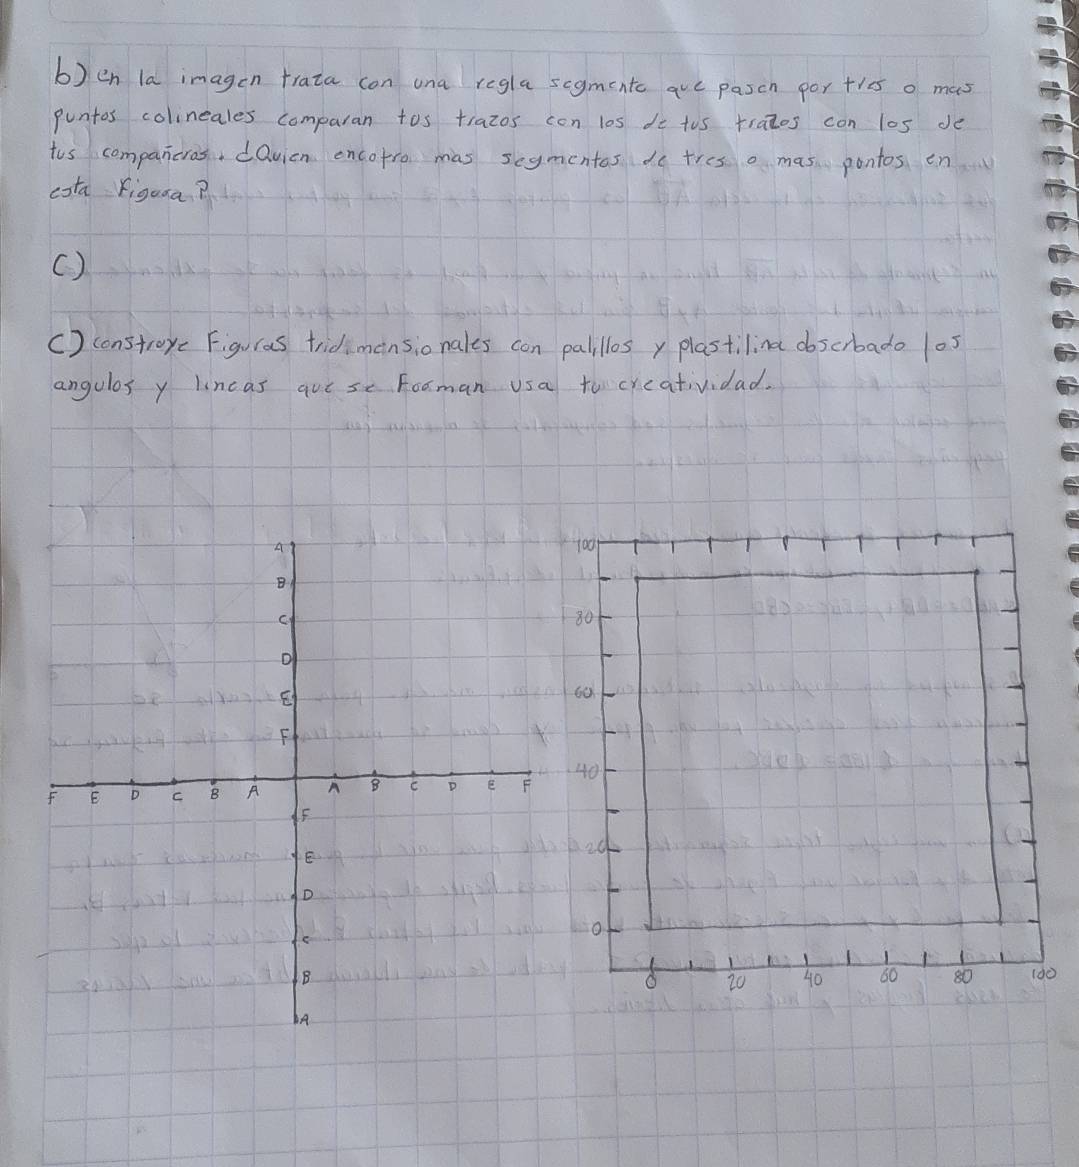 b) en la imagen traza con una regla segmento que pasen por tres o mas
puntos colineales comparan tos trazos con los de tus trazos con los de
tus compañeros. ¿Quien encotro mas segmentos de tres o mas pontos en
esta Figora?
C)
C) construye Figuras tridimensionales con palillos y plastilina obserbado los
angulos y lineas que se Forman usa tu creatividad.
A
B
C
D
E
F
F E D C B A A B C D E F
F
E
D
C
B
A
100
80
60
40
20
0
0 20 40 60 80 100